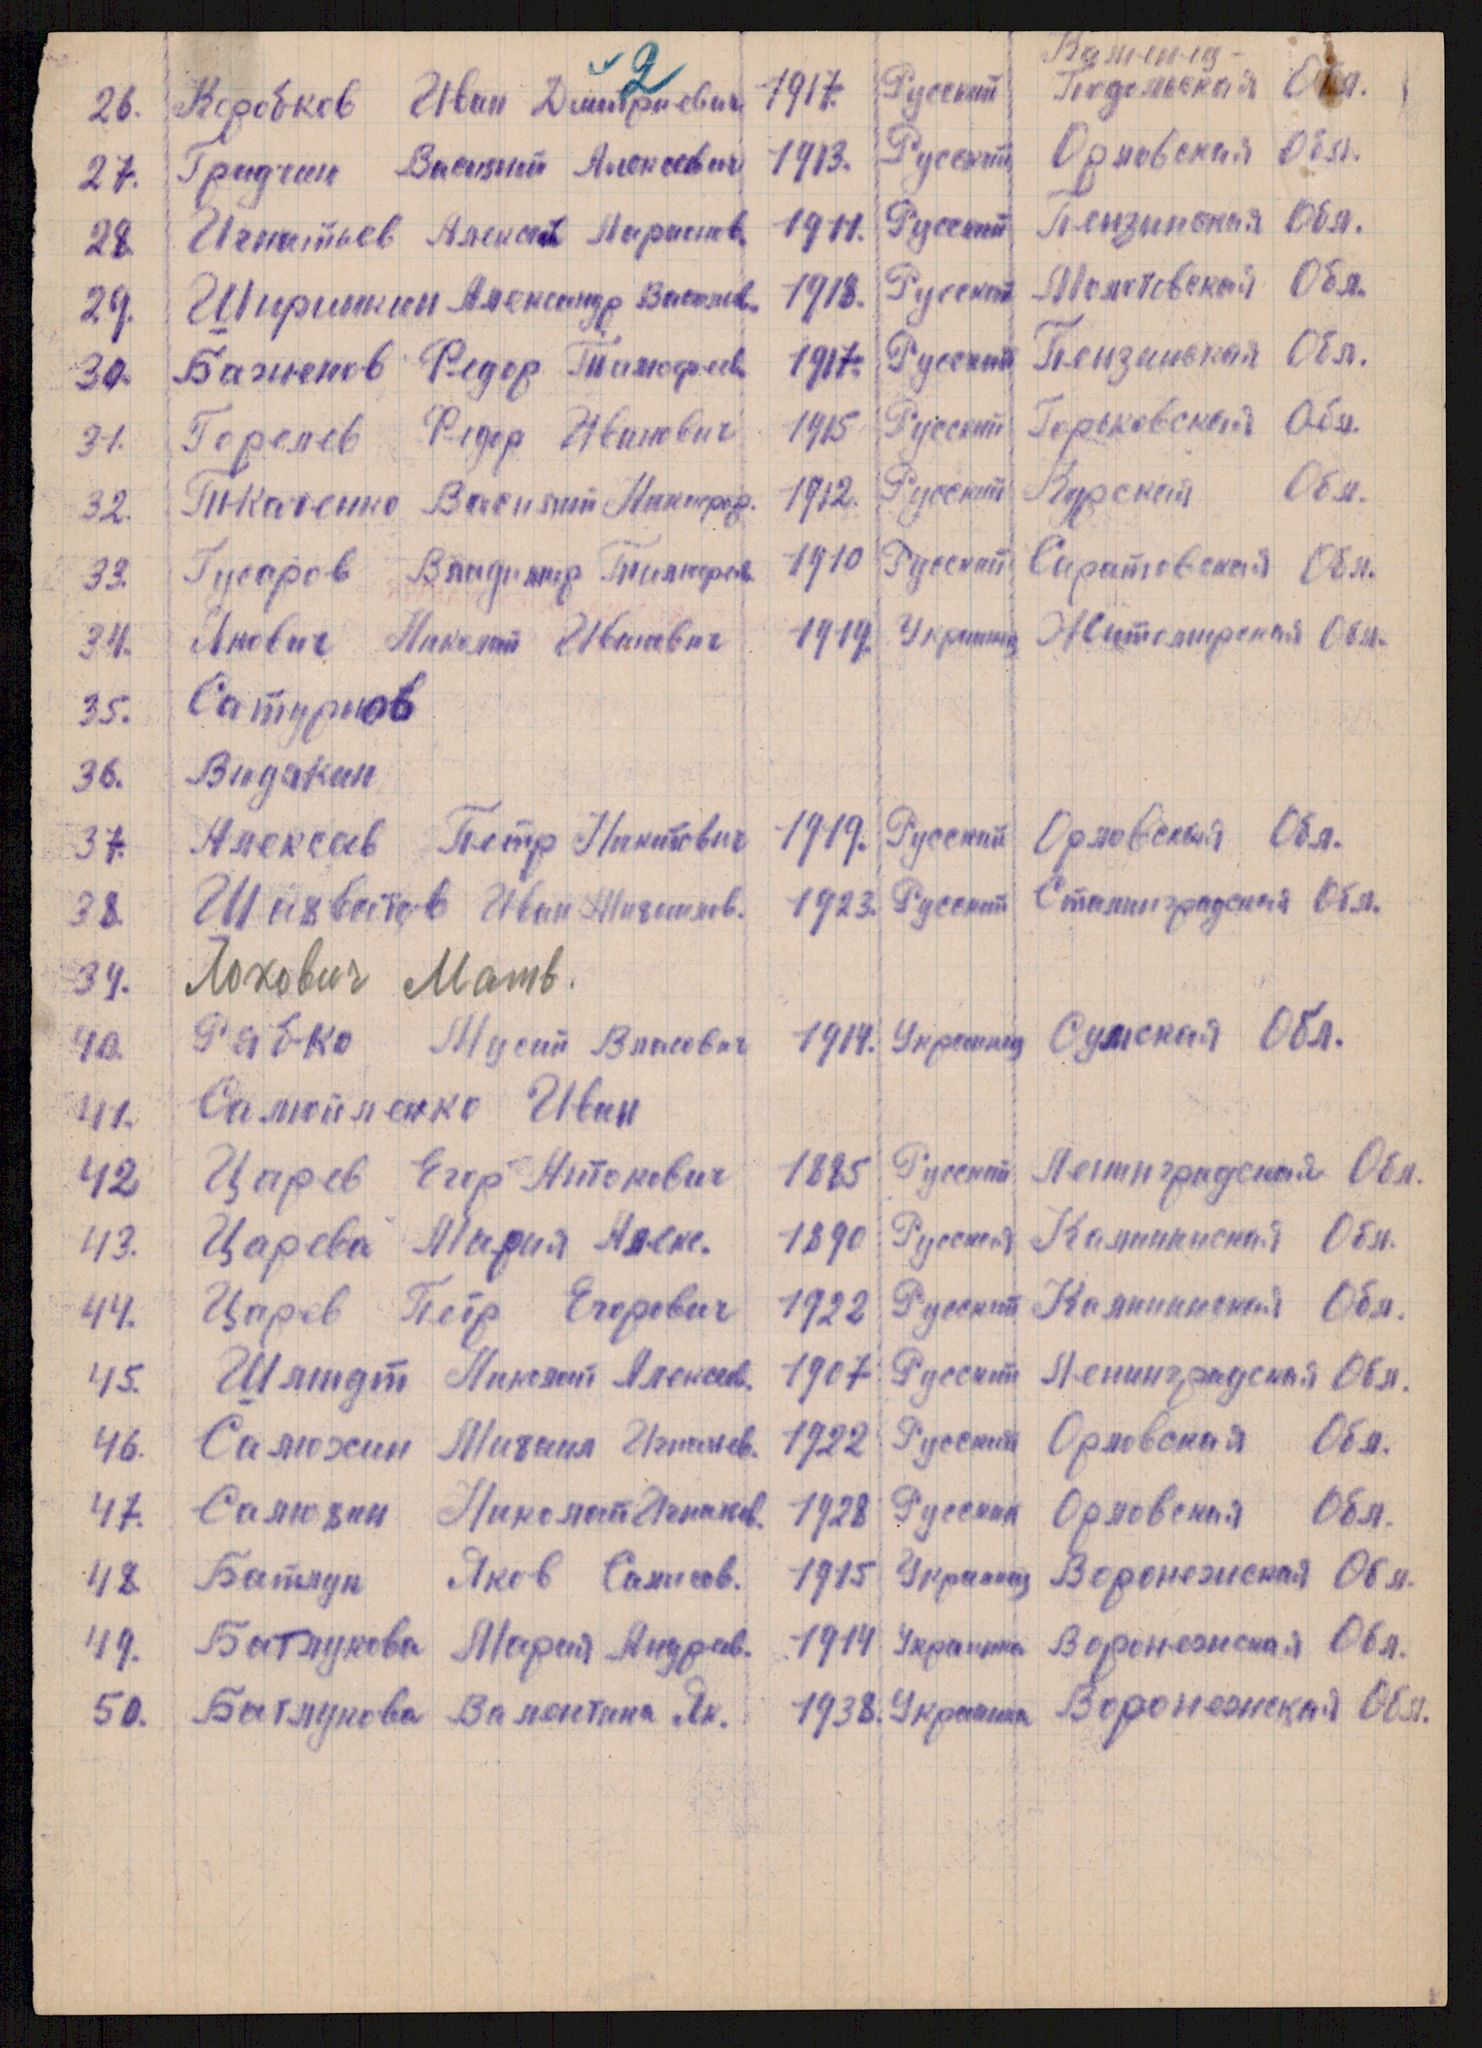 2
Каменец-
26. Коробков Иван Дмитриевич 1917. Русский Подольская Обл.
27. Гридчин Василий Алексеевич 1913. Русский Орловская Обл.
28. Игнатьев Алексей Ларионов. 1911. Русский Пензинская Обл.
29. Ширинкин Александр Васильев. 1918. Русский Молотовская Обл.
30. Баженов Федор Тимофеев. 1917. Русский Пензинская Обл.
31. Горелев Федор Иванович 1915 Русский Горьковская Обл.
32. Ткаченко Василий Никифор. 1912. Русский Курская Обл.
33. Гусаров Владимир Тимофеев. 1910 Русский Саратовская Обл.
34. Янович Николай Иванович 1919. Украинец Житомирская Обл.
35. Сатурнов
36. Видякин
37. Алексеев Петр Никитович 1919. Русский Орловская Обл.
38. Шахватов Иван Михайлов. 1923. Русский Сталинградская Обл.
39. Лохович Матв.
40. Рябко Мусий Власович 1914. Украинец Сумская Обл.
41. Самойленко Иван
42 Царев Егор Антонович 1885 Русский Ленинградская Обл.
43. Царева Мария Алекс. 1890 Русская Калининская Обл.
44. Царев Петр Егорович 1922 Русский Калининская Обл.
45. Шмидт Николай Алексеев. 1907 Русский Ленинградская Обл.
46. Самохин Михаил Игнатьев. 1922 Русский Орловская Обл.
47. Самохин Николай Игнатьев. 1928 Русский Орловская Обл.
48. Батлук Яков Самисов. 1915 Украинец Воронежская Обл.
49. Батлукова Мария Андреев. 1914 Украинка Воронежская Обл.
50. Батлукова Валентина Як. 1938. Украинка Воронежская Обл.